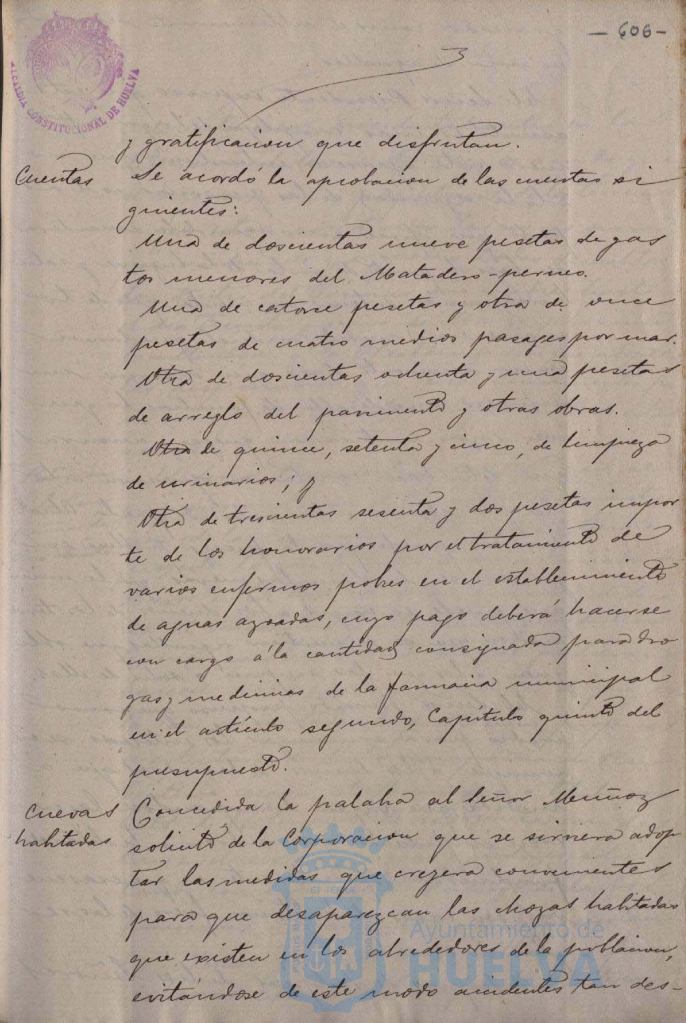 - 606 -
ALCALDIA CONSTITUCIONAL DE HUELVA
y gratificacion que disfrutan.
Cuentas
Se acordó la aprobacion de las cuentas si
guientes:
Una de doscientas nueve pesetas de gas
tos menores del Matadero-perneo.
Una de catorce pesetas y otra de once
pesetas de cuatro medios pasages por mar.
Otra de doscientas ochenta y una pesetas
de arreglo del pavimento y otras obras.
Otra de quince, setenta y cinco, de limpieza
de urinarios; y
Otra de trescientas sesenta y dos pesetas impor
te de los honorarios por el tratamiento de
varios enfermos pobres en el establecimiento
de aguas azoadas, cuyo pago deberá hacerse
con cargo á la cantidad consignada para dro
gas y medicinas de la farmacia municipal
en el artículo segundo, Capítulo quinto del
presupuesto.
Cuevas
habitadas
Concedida la palabra al Señor Muñoz
solicitó de la Corporacion que se sirviera adop
tar las medidas que creyera convenientes
para que desaparezcan las chozas habitadas
que existen en los alrededores de la poblacion,
evitándose de este modo accidentes tan des-
Ayuntamiento de
HUELVA